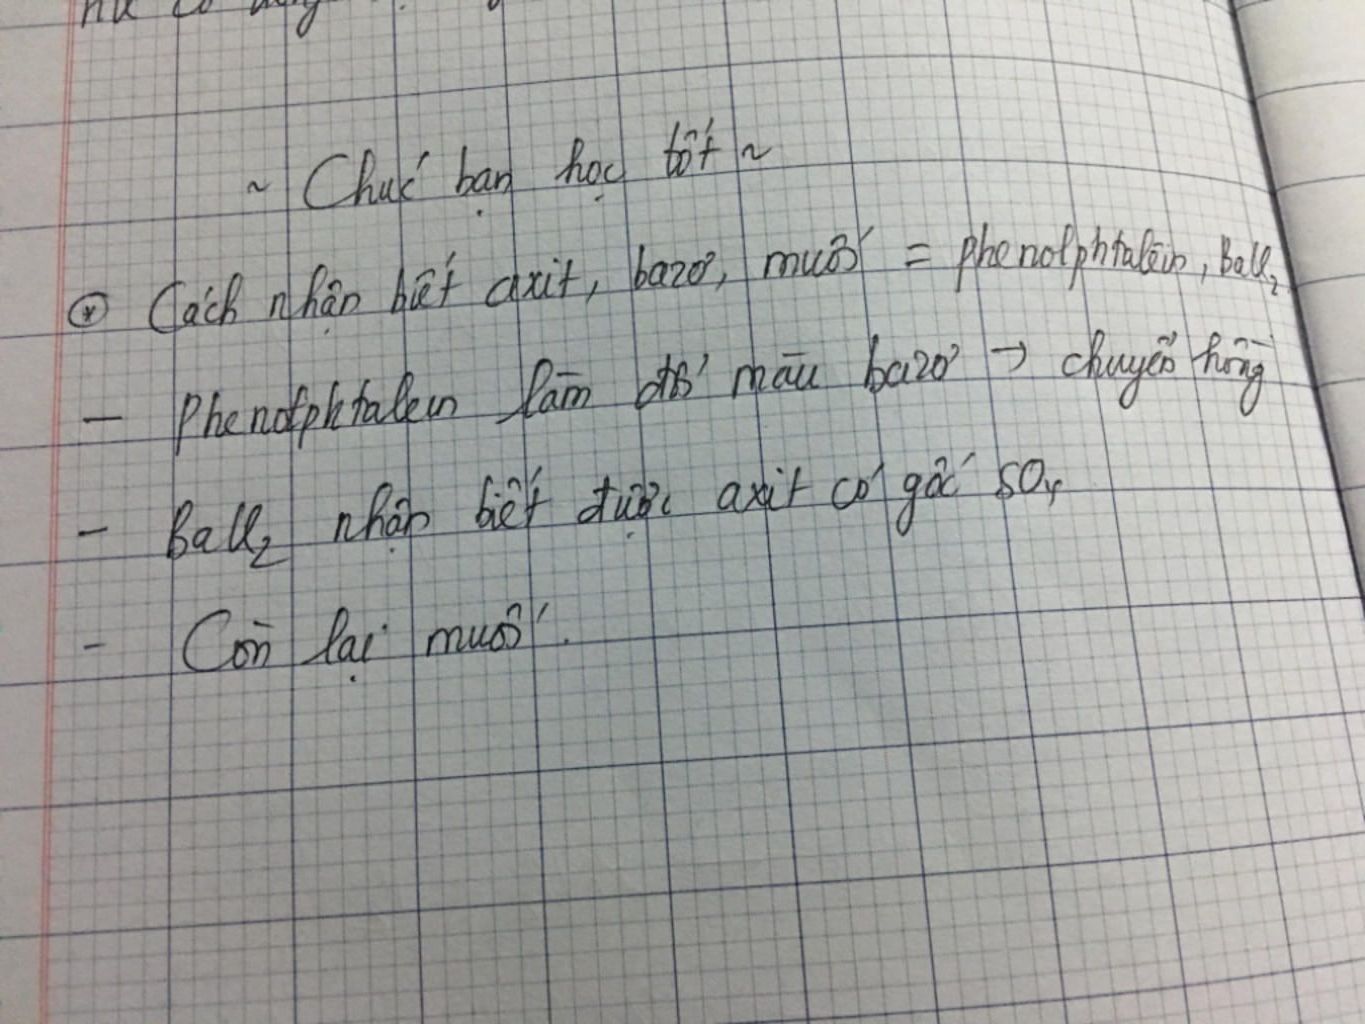 ~ Chúc bạn học tốt ~
⊛ Cách nhận biết axit, bazơ, muối = phenolphtalein, BaCl2
- Phenolphtalein làm đổi màu bazơ → chuyển hồng
- BaCl2 nhận biết được axit có gốc SO4
- Còn lại muối.